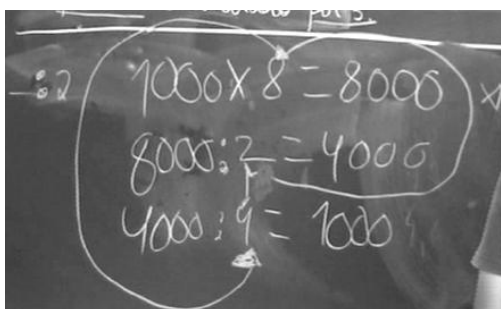 1000 x 8 = 8000
8000 : 2 = 4000
4000 : 4 = 1000
: 2